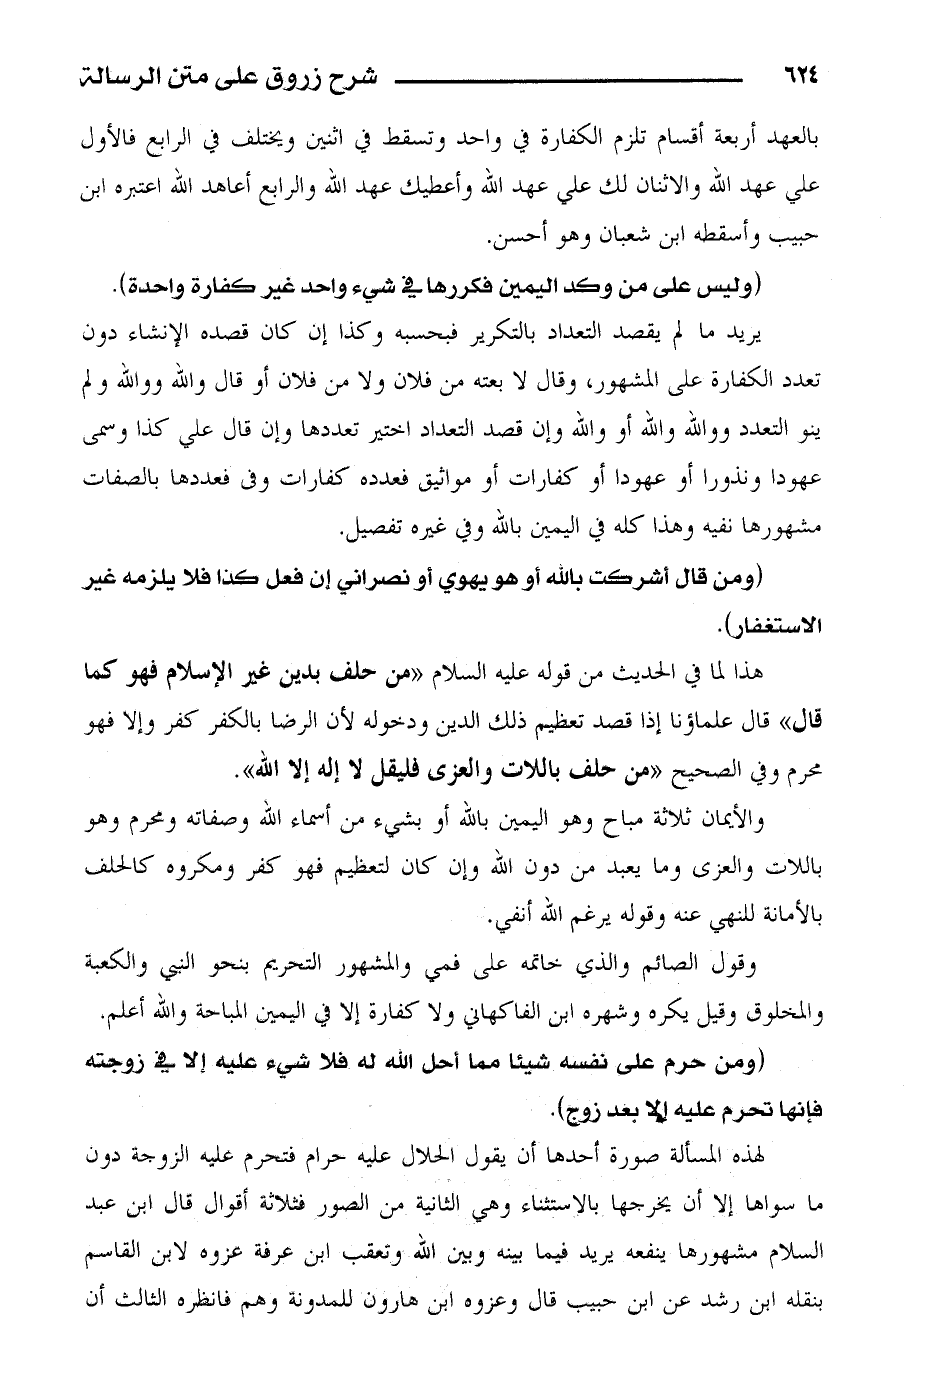 ٦٢٤ شرح زروق على متن الرسالة
بالعهد أربعة أقسام تلزم الكفارة في واحد وتسقط في اثنين ويختلف في الرابع فالأول
علي عهد الله والاثنان لك علي عهد الله وأعطيك عهد الله والرابع أعاهد الله اعتبره ابن
حبيب وأسقطه ابن شعبان وهو أحسن.
(وليس على من وكد اليمين فكررها في شيء واحد غير كفارة واحدة).
يريد ما لم يقصد التعداد بالتكرير فبحسبه وكذا إن كان قصده الإنشاء دون
تعدد الكفارة على المشهور، وقال لا بعته من فلان ولا من فلان أو قال والله ووالله ولم
ينو التعدد ووالله والله أو والله وإن قصد التعداد اختير تعددها وإن قال علي كذا وسمى
عهودا ونذورا أو عهودا أو كفارات أو مواثيق فعدده كفارات وفى فعددها بالصفات
مشهورها نفيه وهذا كله في اليمين بالله وفي غيره تفصيل.
(ومن قال أشركت بالله أو هو يهوي أو نصراني إن فعل كذا فلا يلزمه غير
الاستغفار).
هذا لما في الحديث من قوله عليه السلام «من حلف بدين غير الإسلام فهو كما
قال» قال علماؤنا إذا قصد تعظيم ذلك الدين ودخوله لأن الرضا بالكفر كفر وإلا فهو
محرم وفي الصحيح «من حلف باللات والعزى فليقل لا إله إلا الله».
والأيمان ثلاثة مباح وهو اليمين بالله أو بشيء من أسماء الله وصفاته ومحرم وهو
باللات والعزى وما يعبد من دون الله وإن كان لتعظيم فهو كفر ومكروه كالحلف
بالأمانة للنهي عنه وقوله يرغم الله أنفي.
وقول الصائم والذي خاتمه على فمي والمشهور التحريم بنحو النبي والكعبة
والمخلوق وقيل يكره وشهره ابن الفاكهاني ولا كفارة إلا في اليمين المباحة والله أعلم.
(ومن حرم على نفسه شيئا مما أحل الله له فلا شيء عليه إلا في زوجته
فإنها تحرم عليه إلا بعد زوج).
لهذه المسألة صورة أحدها أن يقول الحلال عليه حرام فتحرم عليه الزوجة دون
ما سواها إلا أن يخرجها بالاستثناء وهي الثانية من الصور فثلاثة أقوال قال ابن عبد
السلام مشهورها ينفعه يريد فيما بينه وبين الله وتعقب ابن عرفة عزوه لابن القاسم
بنقله ابن رشد عن ابن حبيب قال وعزوه ابن هارون للمدونة وهم فانظره الثالث أن